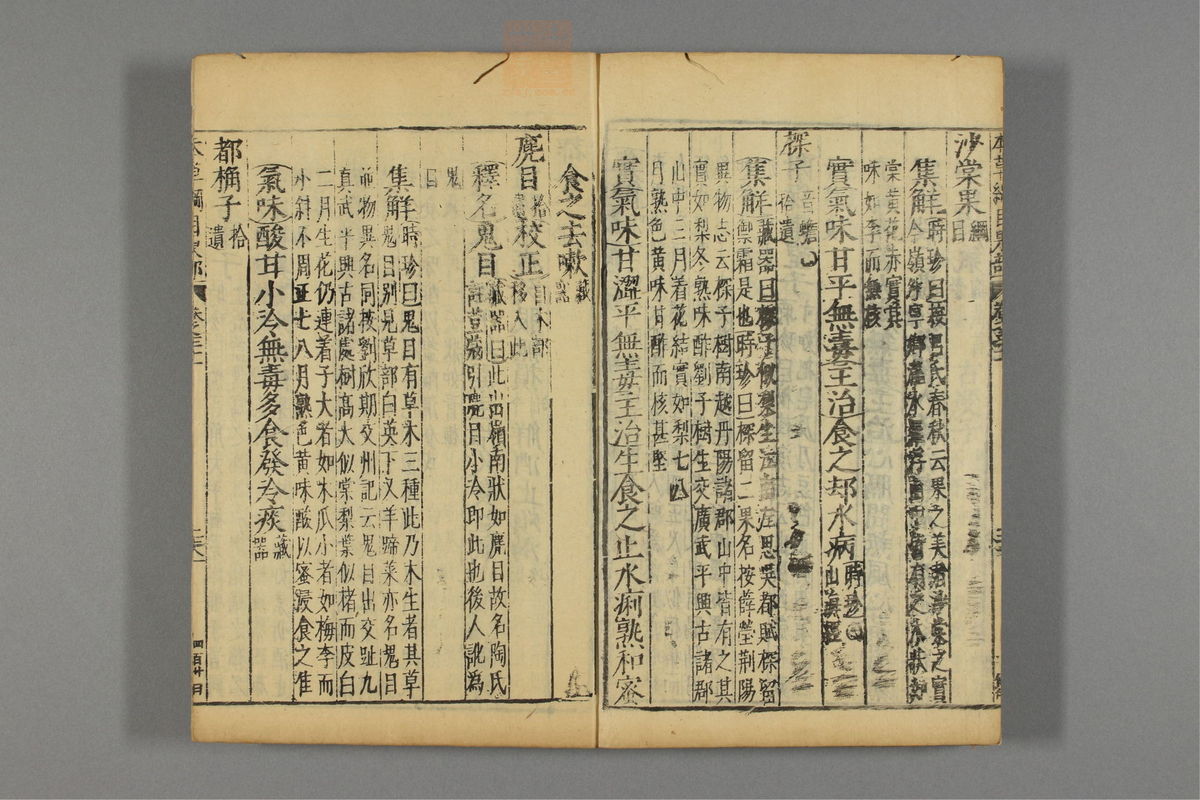 沙棠果綱目
集解時珍曰按呂氏春秋云果之美者沙棠之實
今嶺外寧鄉瀧水
棠黃花赤實其
味如李而無核
實氣味甘平無毒主治食之却水病時珍山海經
㮌子音蟾拾遺
集解藏器曰㮌子似梨生江南左思吳都賦㮌留
禦霜是也時珍曰㮌留二果名按薛瑩荆陽
異物志云㮌子樹南越丹陽諸郡山中皆有之其
實如梨冬熟味酢劉子樹生交廣武平興古諸郡
山中三月着花結實如梨七八
月熟色黃味甘酢而核甚堅
實氣味甘澀平無毒主治生食之止水痢熟和蜜
食之去嗽藏器
麂目拾遺校正自木部移入此
釋名鬼目藏器曰此出嶺南狀如麂目故名陶氏
註荳蔻引麂目小冷即此也後人訛為
鬼目
集解時珍曰鬼目有草木三種此乃木生者其草
鬼目別見草部白英下又羊蹄菜亦名鬼目
並物異名同按劉欣期交州記云鬼目出交趾九
真武平興古諸處樹高大似棠梨葉似楮而皮白
二月生花仍連着子大者如木瓜小者如梅李而
小斜不周正七八月熟色黃味酸以蜜浸食之佳
氣味酸甘小冷無毒多食發冷痰藏器
都桷子拾遺